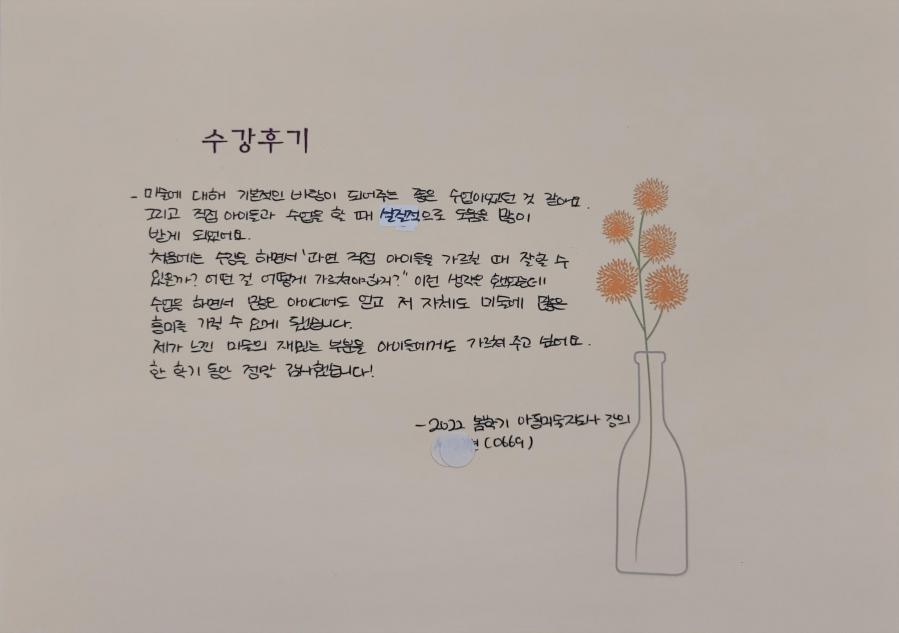 수강후기
- 미술에 대해 기본적인 바탕이 되어주는 좋은 수업이었던 것 같아요.
그리고 직접 아이들과 수업을 할 때 실전적으로 도움을 많이
받게 되었어요.
처음에는 수강을 하면서 "과연 직접 아이들을 가르칠 때 잘할 수
있을까? 어떤 걸 어떻게 가르쳐야하지?" 이런 생각을 했었는데
수업을 하면서 많은 아이디어도 얻고 저 자체도 미술에 많은
흥미를 가질 수 있게 됐습니다.
제가 느낀 미술의 재밌는 부분을 아이들에게도 가르쳐 주고 싶어요.
한 학기 동안 정말 감사했습니다!
- 2022 봄학기 아동미술지도사 강의
현 (0669)